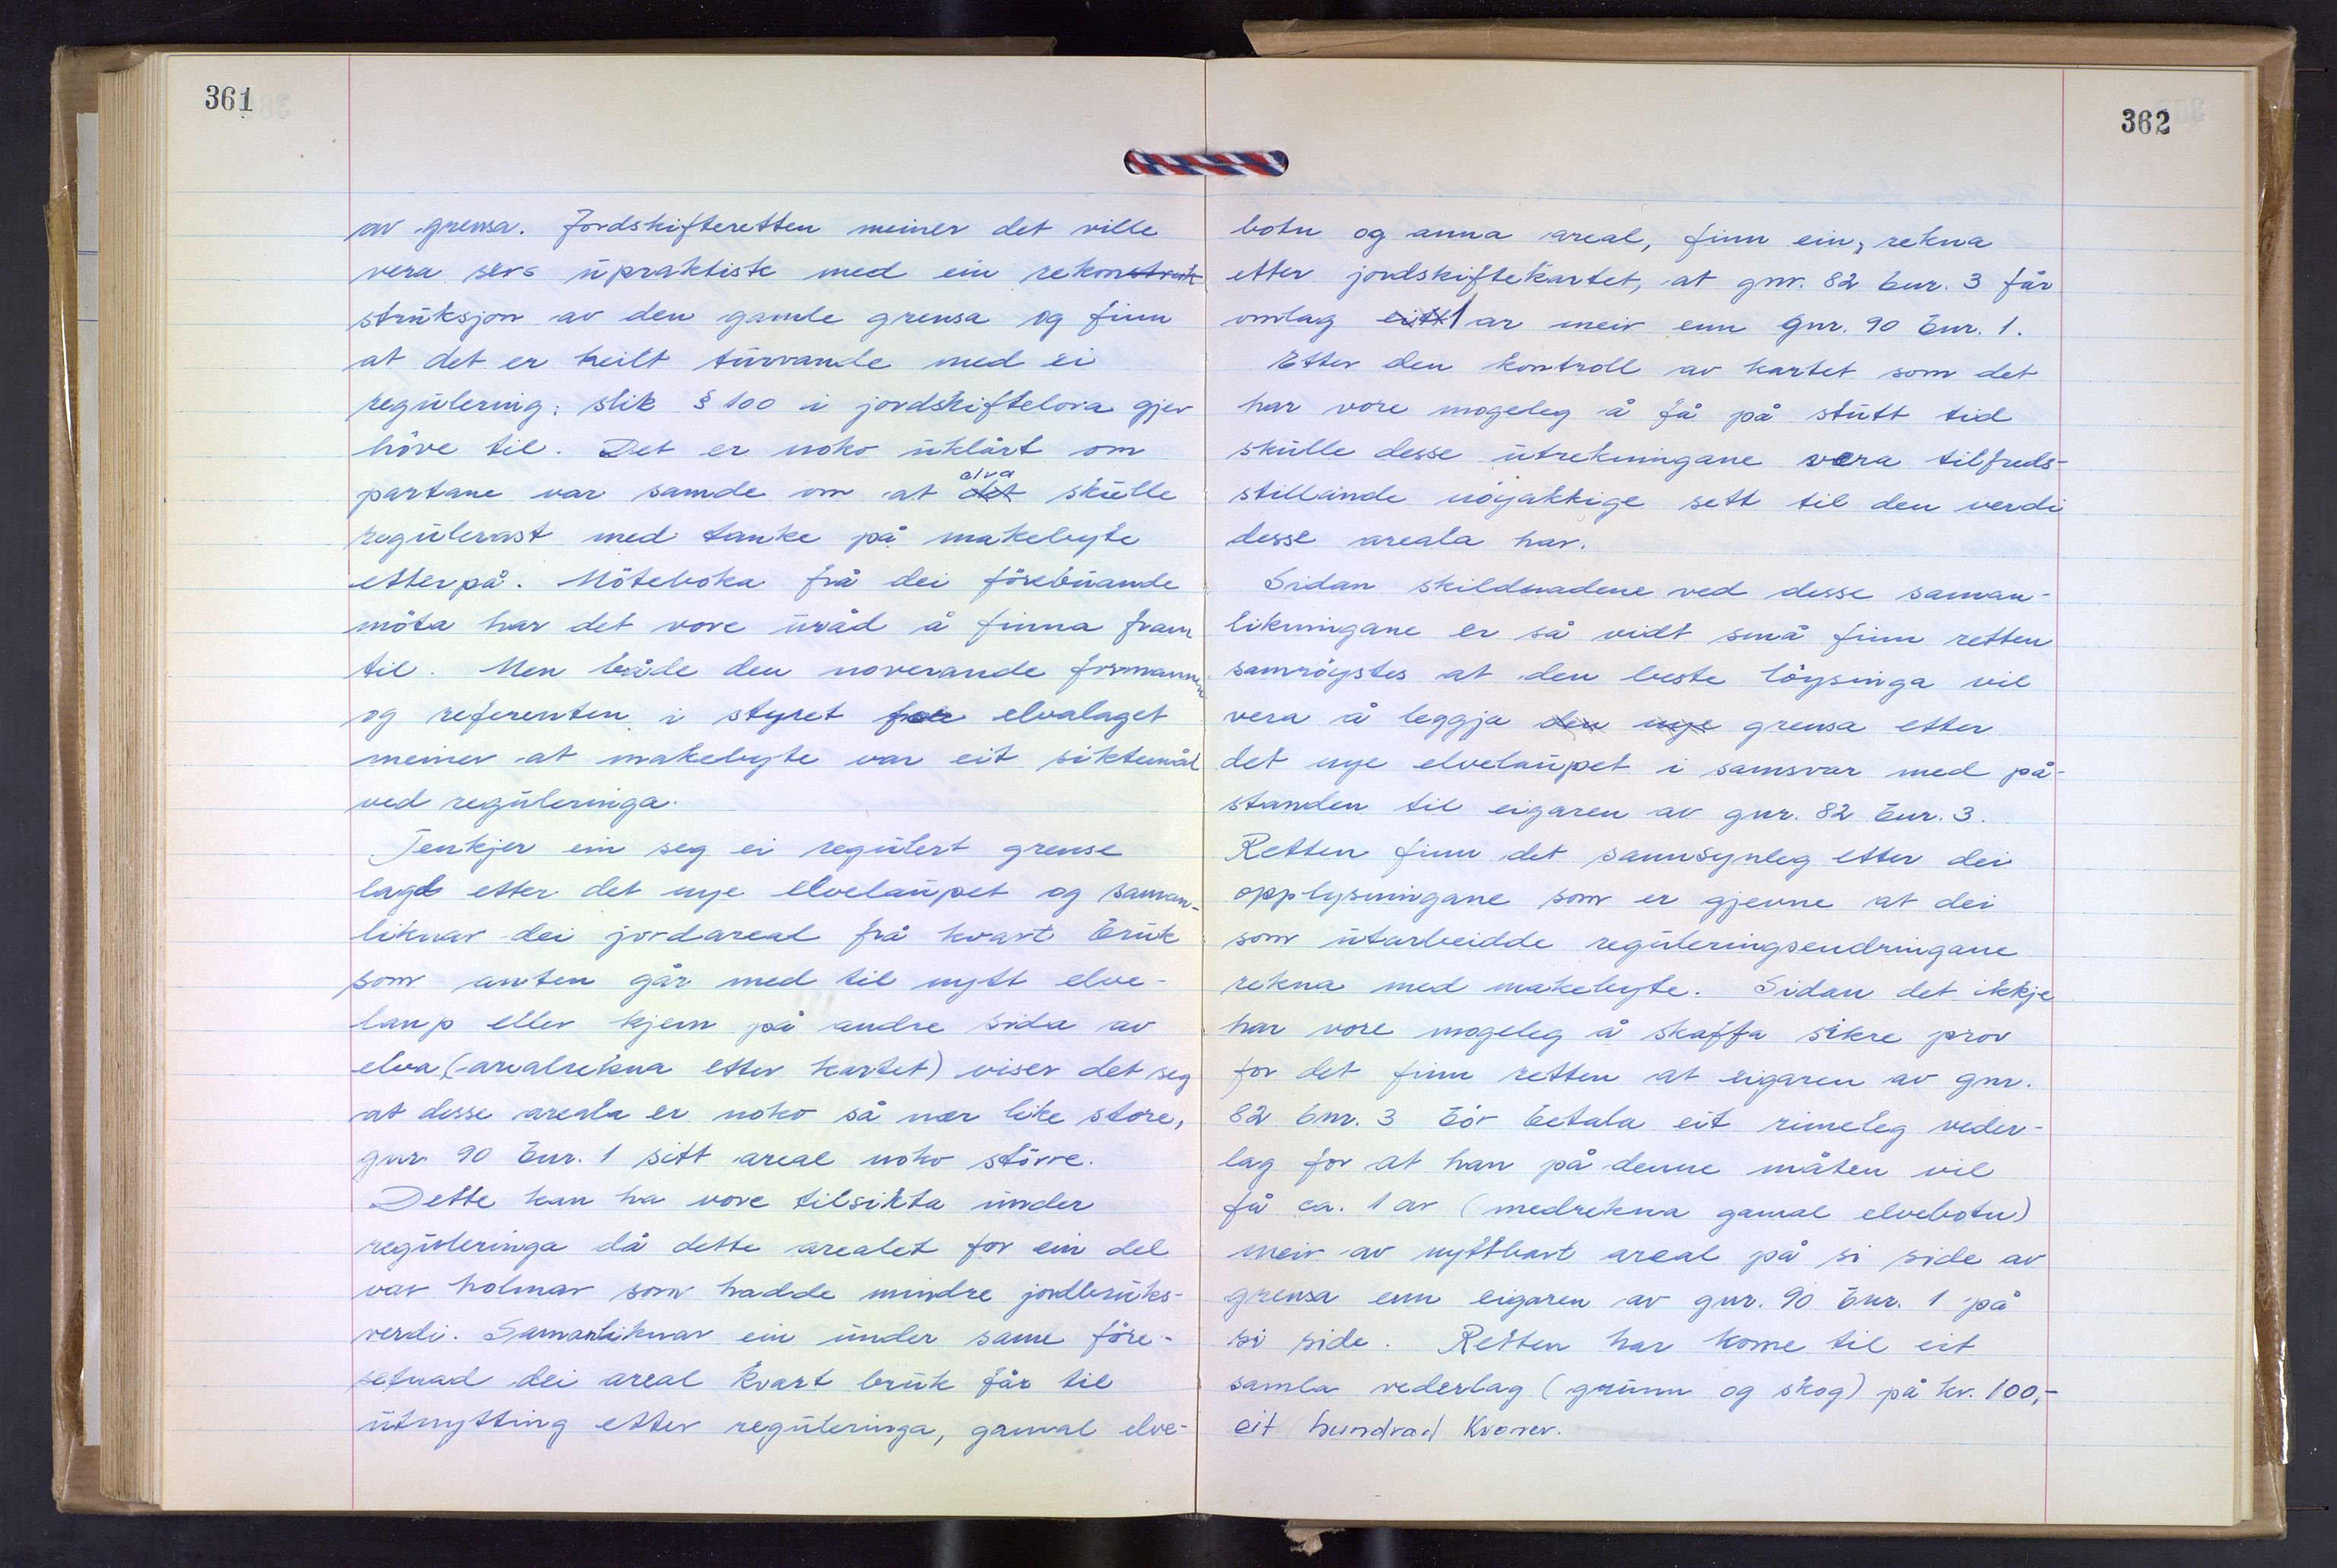 361
av grensa. Jordskifteretten meiner det ville
vera sers upraktisk med ein rekonstruk
struksjon av den gamle grensa og finn
at det er heilt turvande med ei
regulering, slik § 100 i jordskiftelova gjev
höve til. Det er noko uklårt om
elva
partane var samde om at det skulle
regulerast med tanke på makebyte
etterpå. Möteboka frå dei förebuande
möta har det vore uråd å finna fram
til. Men både den noverande formannen
og referenten i styret for elvalaget
meiner at makebyte var eit siktemål
ved reguleringa.
Tenkjer ein seg ei regulert grense
lagd etter det nye elvelaupet og saman-
liknar dei jordareal frå kvart bruk
som anten går med til nytt elve-
laup eller kjem på andre sida av
elva (arealrekna etter kartet) viser det seg
at desse areala er noko så nær like store,
gnr. 90 bnr. 1 sitt areal noko större.
Dette kan ha vore tilsikta under
reguleringa då dette arealet for ein del
var holmar som hadde mindre jordbruks-
verdi. Samanliknar ein under same före-
setnad dei areal kvart bruk får til
utnytting etter reguleringa, gamal elve-
362
botn og anna areal, finn ein, rekna
etter jordskiftekartet, at gnr. 82 bnr. 3 får
omlag eitt 1 ar meir enn gnr. 90 bnr. 1.
Etter den kontroll av kartet som det
har vore mogeleg å få på stutt tid
skulle desse utrekningane vera tilfreds-
stillande nöyaktige sett til den verdi
desse areala har.
Sidan skildnadene ved desse saman-
likningane er så vidt små finn retten
samröystes at den beste löysinga vil
vera å leggja den nye grensa etter
det nye elvelaupet i samsvar med på-
standen til eigaren av gnr. 82 bnr. 3.
Retten finn det sannsynleg etter dei
opplysningane som er gjevne at dei
som utarbeidde reguleringsendringane
rekna med makebyte. Sidan det ikkje
har vore mogeleg å skaffa sikre prov
for det finn retten at eigaren av gnr.
82 bnr. 3 bör betala eit rimeleg veder-
lag for at han på denne måten vil
få ca. 1 ar (medrekna gamal elvebotn)
meir av nyttbart areal på si side av
grensa enn eigaren av gnr. 90 bnr. 1 på
si side. Retten har kome til eit
samla vederlag (grunn og skog) på kr. 100,-
eit hundrad kroner.